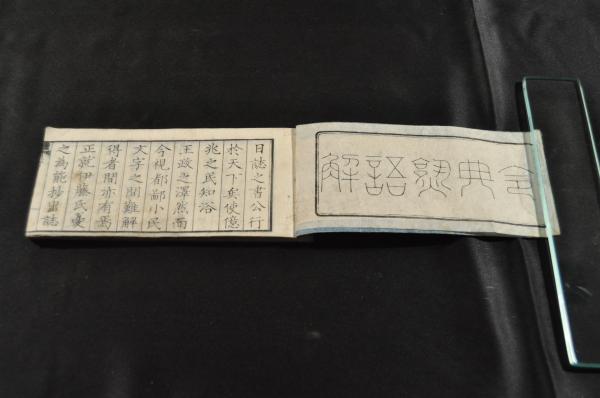 令典熟語解
日誌之書公行
於天下矣使億
兆之民知浴
王政之澤然而
今視都鄙小民
文字之間難解
得者間亦有焉
正就伊藤氏憂
之為能抄出誌